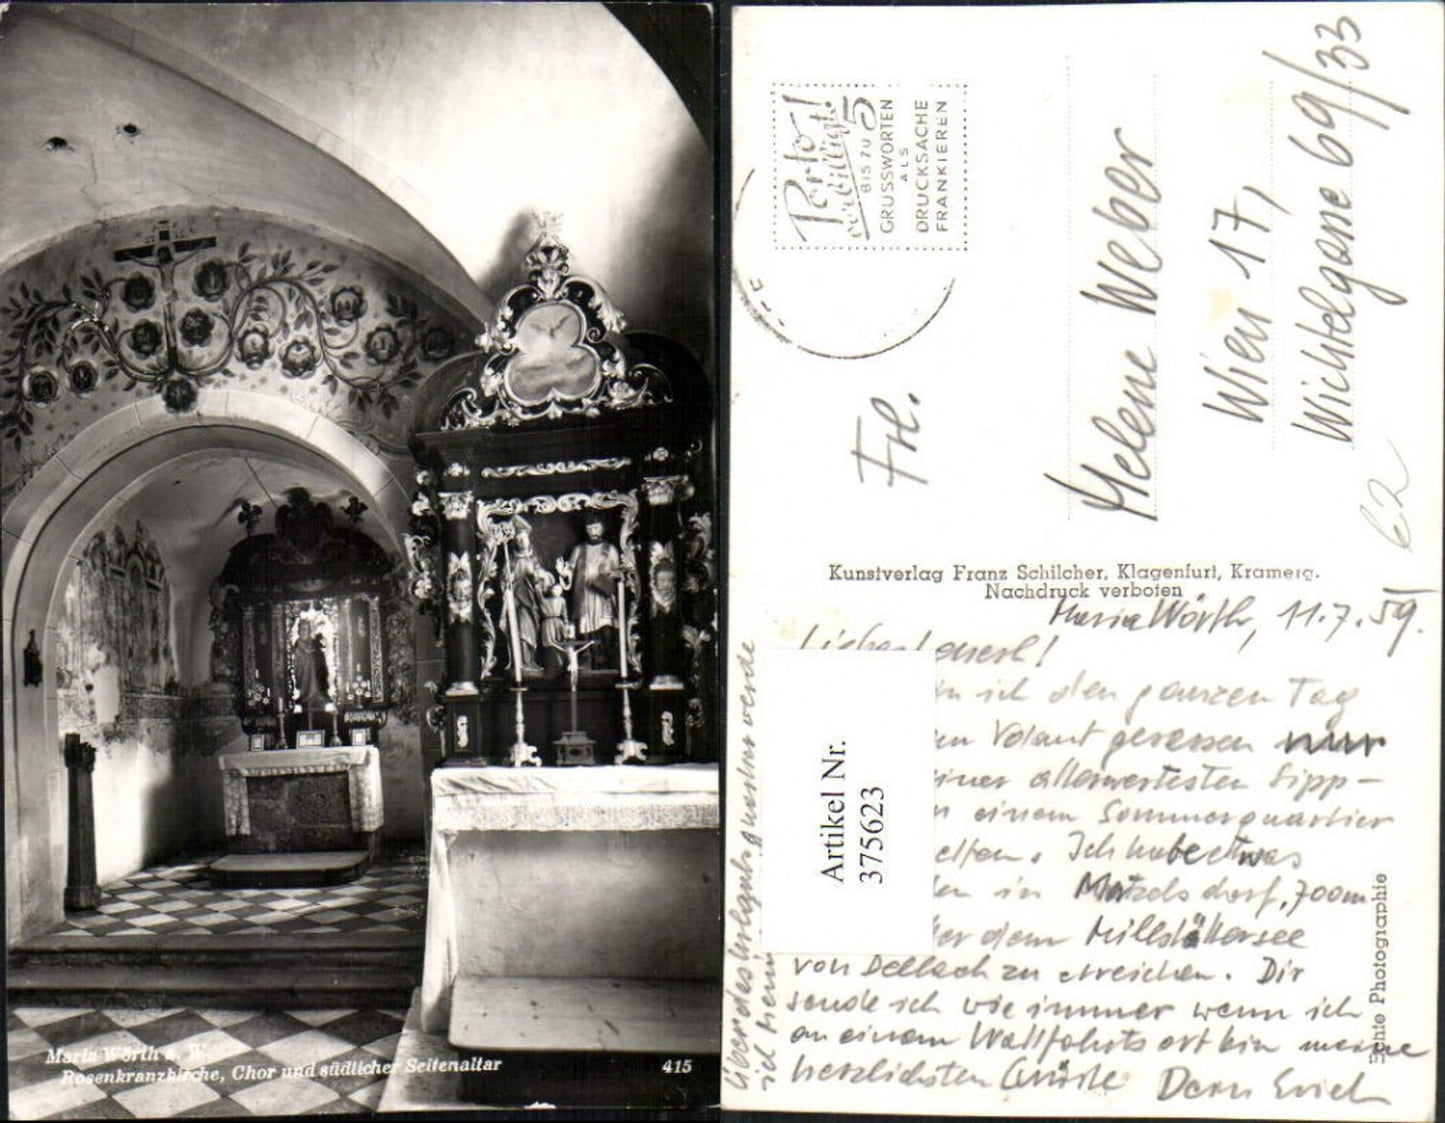 Maria Wörth a. W.
Rosenkranzkirche, Chor und südlicher Seitenaltar
415
Porto-!
verbilligt!
BIS ZU 5
GRUSSWORTEN
ALS
DRUCKSACHE
FRANKIEREN
Frl.
Helene Weber
Wien 17,
Wichtelgasse 69/33
62
Kunstverlag Franz Schilcher, Klagenfurt, Kramerg.
Nachdruck verboten
Maria Wörth, 11.7.59.
ich den ganzen Tag
Volant gesessen nur
einer allerwertesten Sipp-
einem Sommerquartier
Ich habe etwas
in Matzelsdorf, 700m
dem Millstättersee
von Dellach zu erreichen. Dir
sende ich wie immer wenn ich
an einem Wallfahrtsort bin meine
herzlichsten Grüße Dein Erich
Artikel Nr.
375623
Echte Photographie